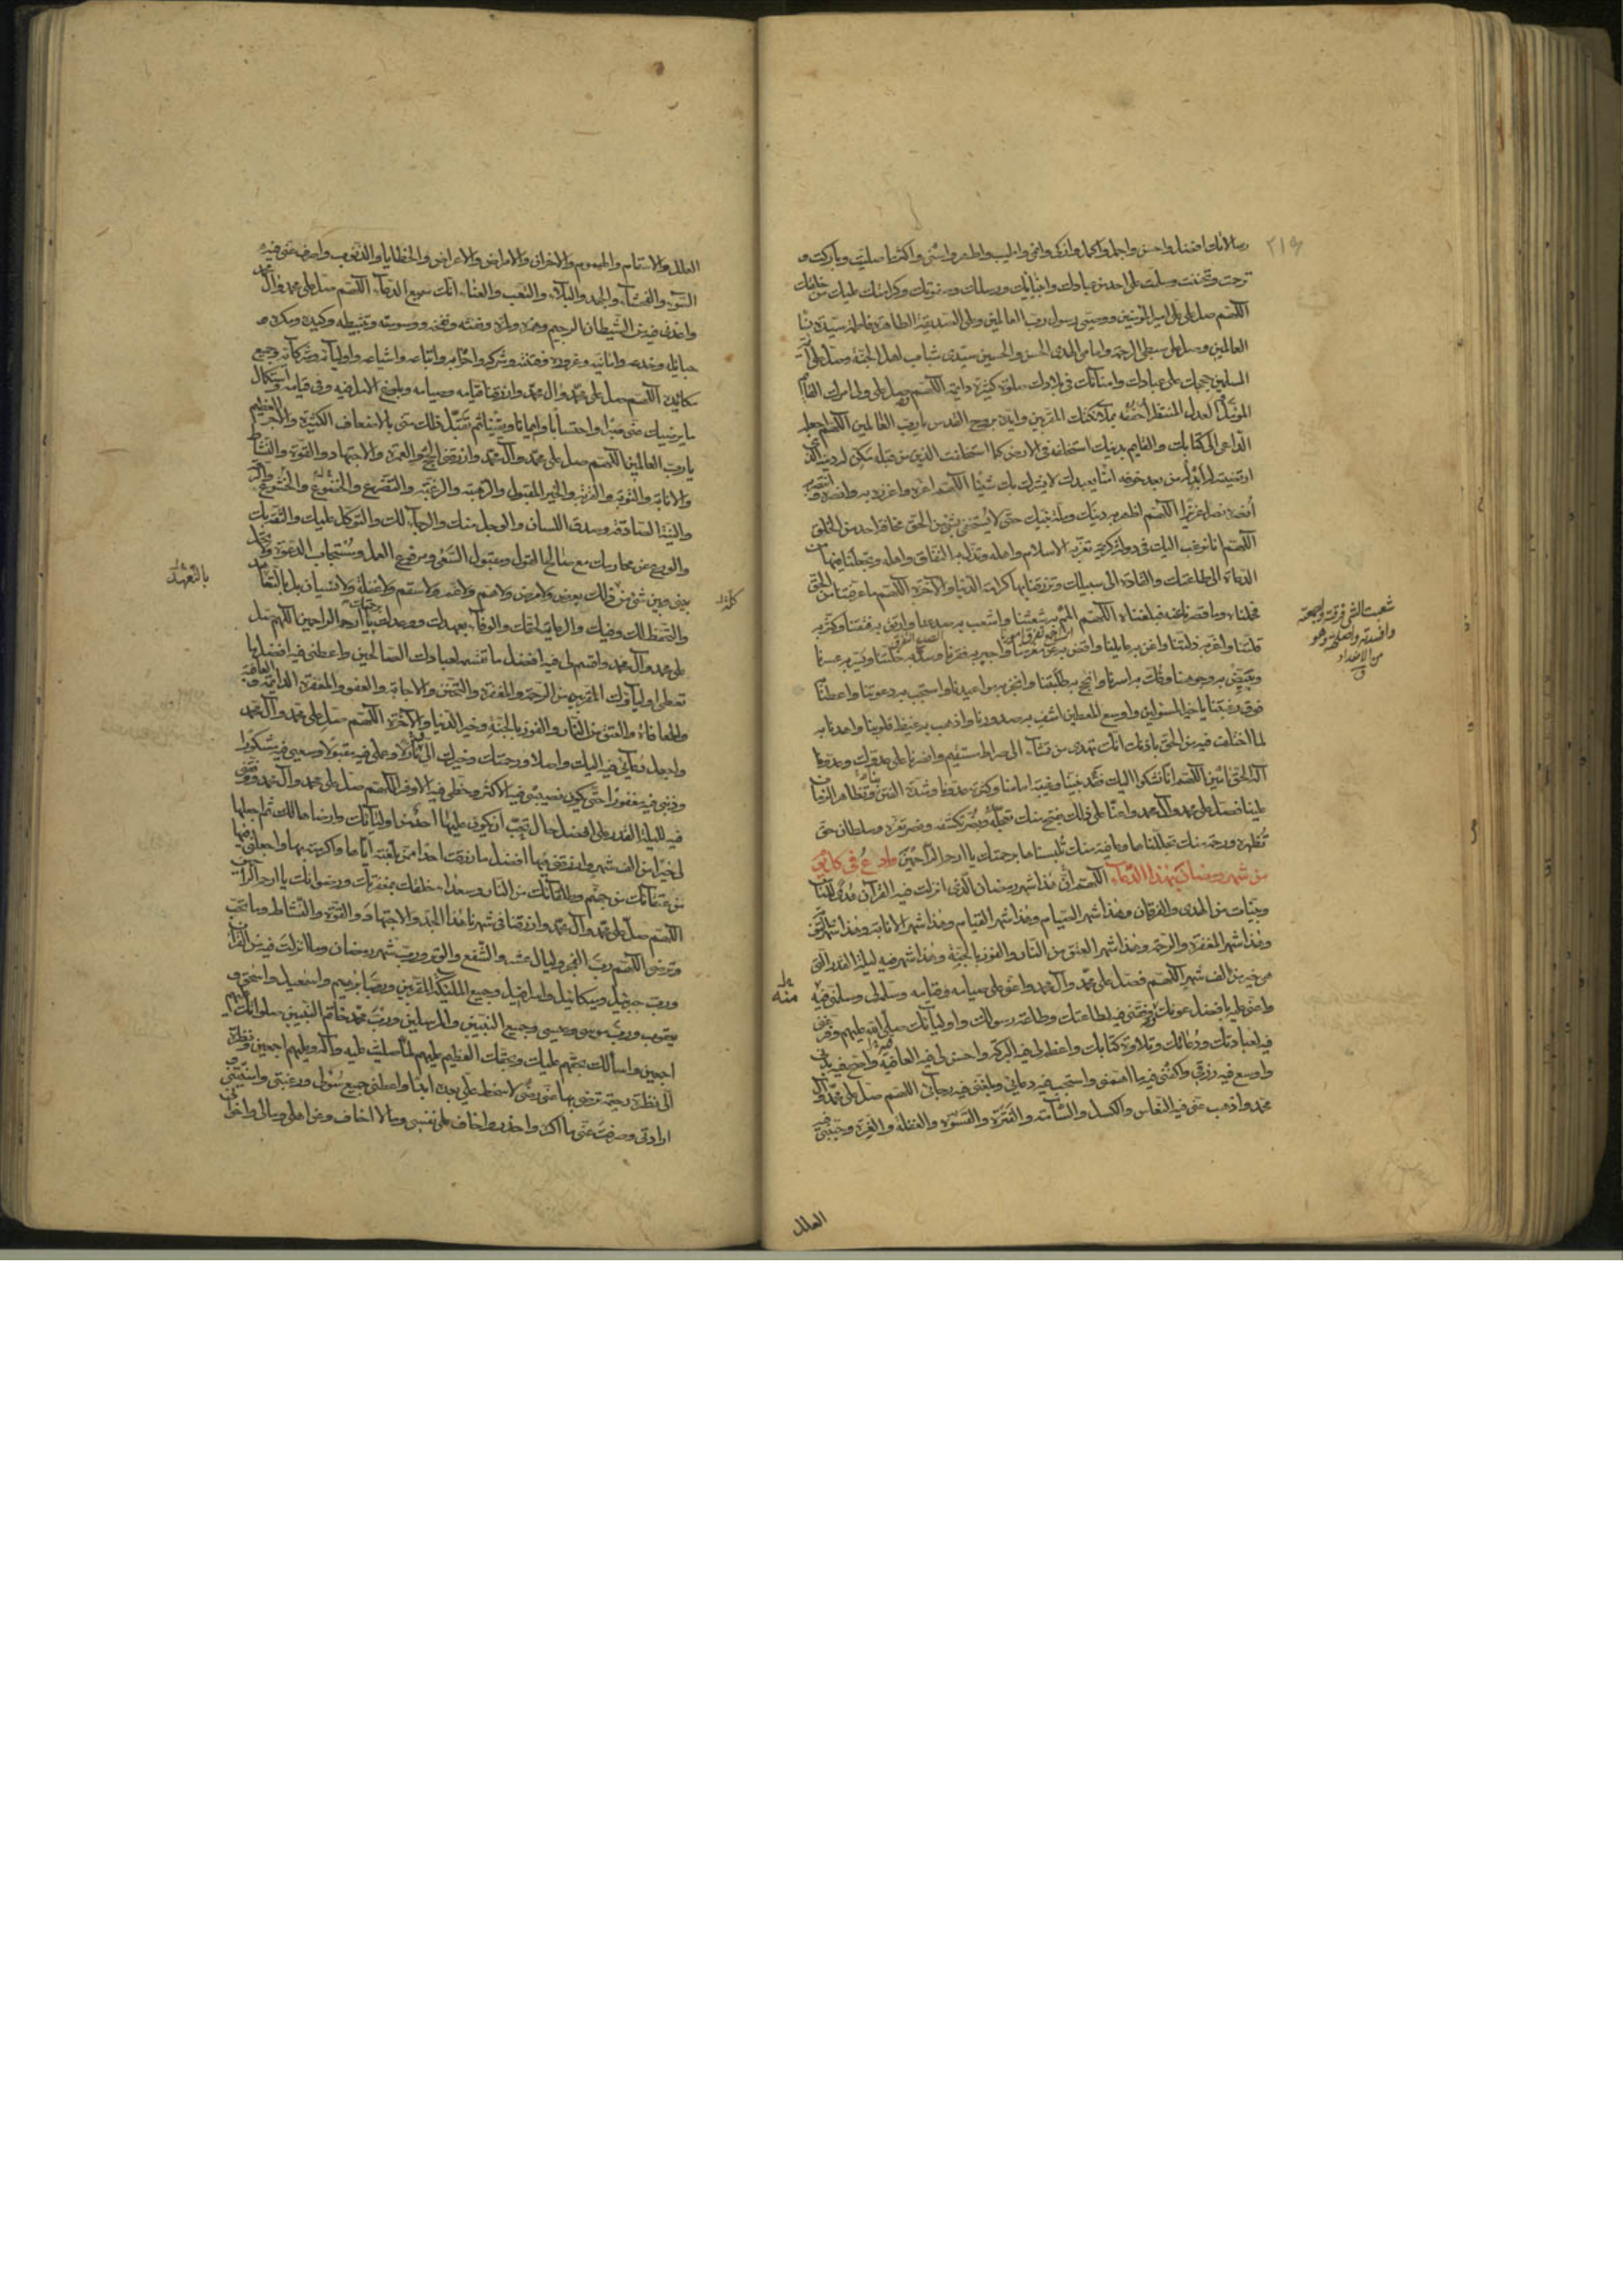 رسالاتك افضل واحسن واجمل واكمل وازكى وانمى واطيب واطهر واسنى واكثر ما صليت وباركت و
ترحمت وتحننت وسلمت على احد من عبادك وانبيائك ورسلك وصفوتك وكرامتك عليك من خلقك
اللهم صل على على امير المؤمنين ووصى رسول رب العالمين وعلى الصديقة الطاهرة فاطمة سيدة نساء
العالمين وصل على سبطى الرحمة وامامى الهدى الحسن والحسين سيدى شباب اهل الجنة وصل على ائمة
المسلمين حججك على عبادك وامنائك فى بلادك صلوة كثيرة دائمة اللهم وصل على ولى امرك القائم
المؤمل العدل المنتظر احففه بملائكتك المقربين وايده بروح القدس يا رب العالمين اللهم اجعله
الداعى الى كتابك والقايم بدينك استخلفه فى الارض كما استخلفت الذين من قبله مكن له دينه الذى
ارتضيته له ابدله من بعد خوفه امنا يعبدك لا يشرك بك شيئا اللهم اعزه واعزز به وانصره وانتصر به
انصره نصرا عزيزا اللهم اظهر به دينك وملة نبيك حتى لا يستخفى بشئ من الحق مخافة احد من الخلق
اللهم انا نرغب اليك فى دولة كريمة تعز بها الاسلام واهله وتذل بها النفاق واهله وتجعلنا فيها من
الدعاة الى طاعتك والقادة الى سبيلك وترزقنا بها كرامة الدنيا والآخرة اللهم ما عرفتنا من الحق
فحملناه وما قصرنا عنه فبلغناه اللهم المم به شعثنا واشعب به صدعنا وارتق به فتقنا وكثر به
قلتنا واعزز به ذلتنا واغن به عايلنا واقض به عن مغرمنا واجبر به فقرنا وسد به خلتنا ويسر به عسرنا
وبيض به وجوهنا وفك به اسرنا وانجح به طلبتنا وانجز به مواعيدنا واستجب به دعوتنا واعطنا
فوق رغبتنا يا خير المسئولين واوسع المعطين اشف به صدورنا واذهب به غيظ قلوبنا واهدنا به
لما اختلف فيه من الحق باذنك انك تهدى من تشاء الى صراط مستقيم وانصرنا على عدوك وعدونا
اله الحق امين اللهم انا نشكوا اليك فقد نبينا وغيبة امامنا وكثرة عدونا وشدة الفتن بنا وتظاهر الزمان
علينا فصل على محمد وآل محمد واعنا على ذلك بفتح منك تعجله وبضر تكشفه ونصر تعزه وسلطان حق
تظهره ورحمة منك تجللناها وعافية منك تلبسناها برحمتك يا ارحم الراحمين وادع فى كل يوم
من شهر رمضان بهذا الدعاء اللهم ان هذا شهر رمضان الذى انزلت فيه القرآن هدى للناس
وبينات من الهدى والفرقان وهذا شهر الصيام وهذا شهر القيام وهذا شهر الانابة وهذا شهر التوبة
وهذا شهر المغفرة والرحمة وهذا شهر العتق من النار والفوز بالجنة وهذا شهر فيه ليلة القدر التى
هى خير من الف شهر اللهم فصل على محمد وآل محمد واعنى على صيامه وقيامه وسلمه لى وسلمنى فيه
واعنى عليه بافضل عونك ووفقنى فيه لطاعتك وطاعة رسولك واوليائك صلى الله عليهم وفرغنى
فيه لعبادتك ودعائك وتلاوة كتابك واعظم لى فيه البركة واحسن لى فيه العافية واصح فيه بدنى
واوسع فيه رزقى واكفنى فيه ما اهمنى واستجب فيه دعائى وبلغنى فيه رجائى اللهم صل على محمد وآل
محمد واذهب عنى فيه النعاس والكسل والسأمة والفترة والقسوة والغفلة والغرة وجنبنى فيه
العلل
شعبت الشئ فرقته وجمعته
وافسدته واصلحته وهو
من الاضداد
منه
العلل والاسقام والهموم والاحزان والامراض والاعراض والخطايا والذنوب واصرف عنى فيه
السوء والفحشاء والجهد والبلاء والتعب والعناء انك سميع الدعاء اللهم صل على محمد وآل محمد
واعذنى فيه من الشيطان الرجيم وهمزه ولمزه ونفثه ونفخه ووسوسته وتثبيطه وكيده ومكره و
حبائله وخدعه وامانيه وغروره وفتنته وشركه واحزابه واتباعه واشياعه واوليائه وشركائه وجميع
مكائده اللهم صل على محمد وآل محمد وارزقنا قيامه وصيامه وبلوغ الامل فيه وفى قيامه واستكمال
ما يرضيك عنى صبرا واحتسابا وايمانا ويقينا ثم تقبل ذلك منى بالاضعاف الكثيرة والاجر العظيم
يا رب العالمين اللهم صل على محمد وآل محمد وارزقنى الحج والعمرة والاجتهاد والقوة والنشاط
والانابة والتوبة والقربة والخير المقبول والرهبة والرغبة والتضرع والخشوع والرقة
والنية الصادقة وصدق اللسان والوجل منك والرجاء لك والتوكل عليك والثقة بك
والورع عن محارمك مع صالح القول ومقبول السعى ومرفوع العمل ومستجاب الدعوة ولا تحل
بينى وبين شئ من ذلك بعرض ولا مرض ولا هم ولا غم ولا سقم ولا غفلة ولا نسيان بل بالتعاهد
والتحفظ لك وفيك والرعاية لحقك والوفاء بعهدك ووعدك برحمتك يا ارحم الراحمين اللهم صل
على محمد وآل محمد واقسم لى فيه افضل ما تقسمه لعبادك الصالحين واعطنى فيه افضل ما
تعطى اولياءك المقربين من الرحمة والمغفرة والتحنن والاجابة والعفو والمغفرة الدائمة والعافية
والمعافاة والعتق من النار والفوز بالجنة وخير الدنيا والآخرة اللهم صل على محمد وآل محمد
واجعل دعائى فيه اليك واصلا ورحمتك وخيرك الى فيه نازلا وعملى فيه مقبولا وسعيى فيه مشكورا
وذنبى فيه مغفورا حتى يكون نصيبى فيه الاكثر وحظى فيه الاوفر اللهم صل على محمد وآل محمد ووفقنى
فيه لليلة القدر على افضل حال تحب ان يكون عليها احد من اوليائك وارضاها لك ثم اجعلها
لى خيرا من الف شهر وارزقنى فيها افضل ما رزقت احدا ممن بلغته اياها واكرمته بها واجعلنى فيها
من عتقائك من جهنم وطلقائك من النار وسعداء خلقك بمغفرتك ورضوانك يا ارحم الراحمين
اللهم صل على محمد وآل محمد وارزقنا فى شهرنا هذا الجد والاجتهاد والقوة والنشاط وما تحب
وترضى اللهم رب الفجر وليال عشر والشفع والوتر ورب شهر رمضان وما انزلت فيه من القرآن
ورب جبرئيل وميكائيل واسرافيل وجميع الملئكة المقربين ورب ابرهيم واسمعيل واسحق و
يعقوب ورب موسى وعيسى وجميع النبيين والمرسلين ورب محمد خاتم النبيين صلواتك عليهم
اجمعين واسألك بحقهم عليك وبحقك العظيم عليهم لما صليت عليه وآله وعليهم اجمعين ونظرت
الى نظرة رحيمة ترضى بها عنى رضى لا سخط على بعده ابدا واعطنى جميع سؤلى ورغبتى وامنيتى و
ارادتى وصرفت عنى ما اكره واحذر واخاف على نفسى وما لا اخاف وعن اهلى ومالى واخوانى
بالتعهد